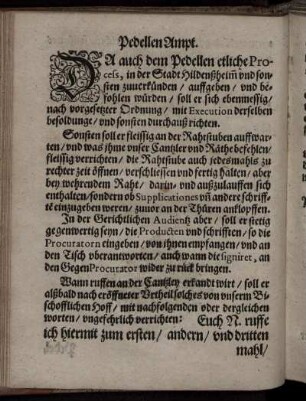 Pedellen Ampt.
DA auch dem Pedellen etliche Pro-
cess, in der Stadt Hildenßheim̃ vnd son-
sten zuuerkünden / auffgeben / vnd be-
fohlen würden / soll er sich ebenmessig /
nach vorgesetzter Ordnung / mit Execution derselben
besoldunge / vnd sonsten durchauß richten.
Sonsten soll er fleissig an der Rahtstuben auffwar-
ten / vnd was ihme vnser Cantzler vnd Räthe befehlen /
fleissig verrichten / die Rahtstube auch jedesmahls zu
rechter zeit öffnen / verschliessen vnd fertig halten / aber
bey wehrendem Rahte / darin- vnd außzulauffen sich
enthalten / sondern ob Supplicationes vñ andere schriff-
te einzugeben weren / zuuor an der Thüren anklopffen.
In der Gerichtlichen Audientz aber / soll er stetig
gegenwertig seyn / die Producten vnd schrifften / so die
Procuratorn eingeben / von ihnen empfangen / vnd an
den Tisch vberantworten / auch wann die signiret, an
den GegenProcurator wider zu rück bringen.
Wann ruffen an der Cantzley erkandt wirt / soll er
alßbald nach eröffneter Vrtheil solchs von vnserm Bi-
schofflichen Hoff / mit nachfolgenden oder dergleichen
worten / vngefehrlich verrichten: Euch N. ruffe
ich hiermit zum ersten / andern / vnd dritten
mahl /